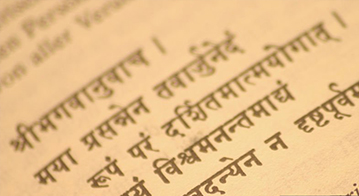 aller
श्रीभगवानुवाच ।
मया प्रसन्नेन तवार्जुनेदं
रूपं परं दर्शितमात्मयोगात् ।
यं विश्वमनन्तमाद्यं
दन्येन न दृष्टपूर्वम